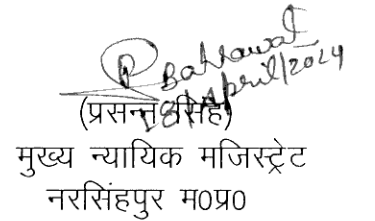 18/April/2024
(प्रसन्न सिंह)
मुख्य न्यायिक मजिस्ट्रेट
नरसिंहपुर म0प्र0